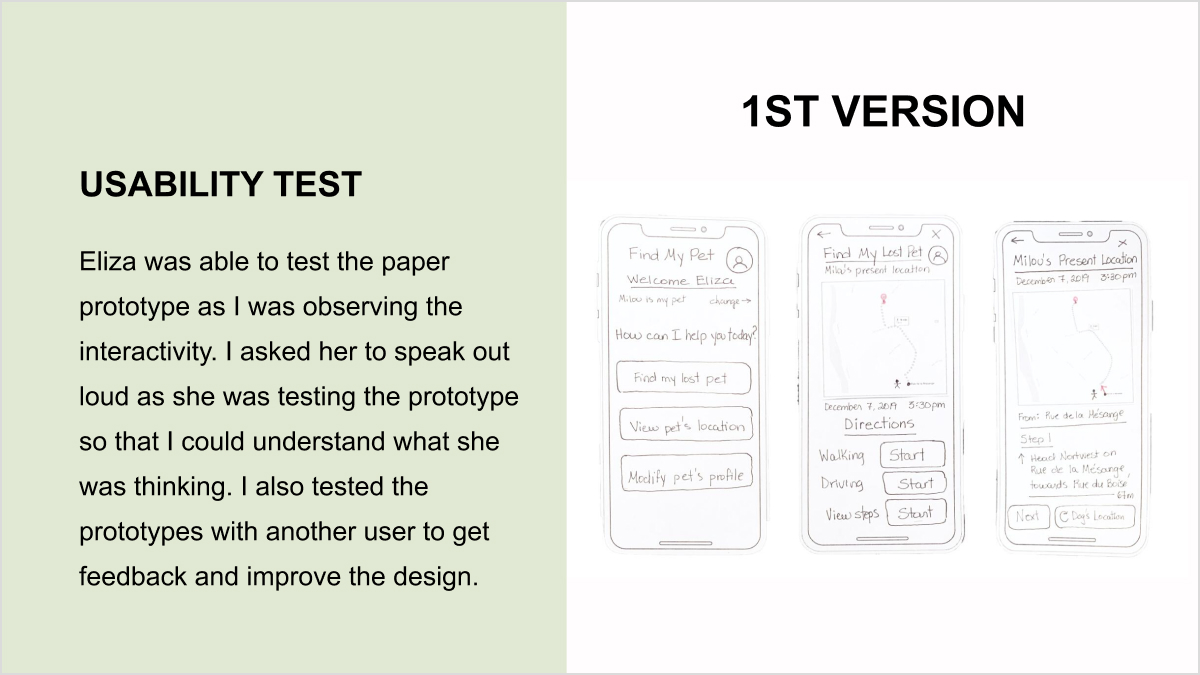 USABILITY TEST
Eliza was able to test the paper
prototype as I was observing the
interactivity. I asked her to speak out
loud as she was testing the prototype
so that I could understand what she
was thinking. I also tested the
prototypes with another user to get
feedback and improve the design.
1ST VERSION
Find My Pet
Welcome Eliza
Milou is my pet change→
How can I help you today?
Find my lost pet
View pet's location
Modify pet's profile
← X
Find My Lost Pet
Milou's present location
December 7, 2019 3:30pm
Directions
Walking Start
Driving Start
View steps Start
← X
Milou's Present Location
December 7, 2019 3:30pm
From: Rue de la Mésange
Step 1
↑ Head Nortwest on
Rue de la Mésange,
towards Rue du Boisé,
67m
Next Dog's Location